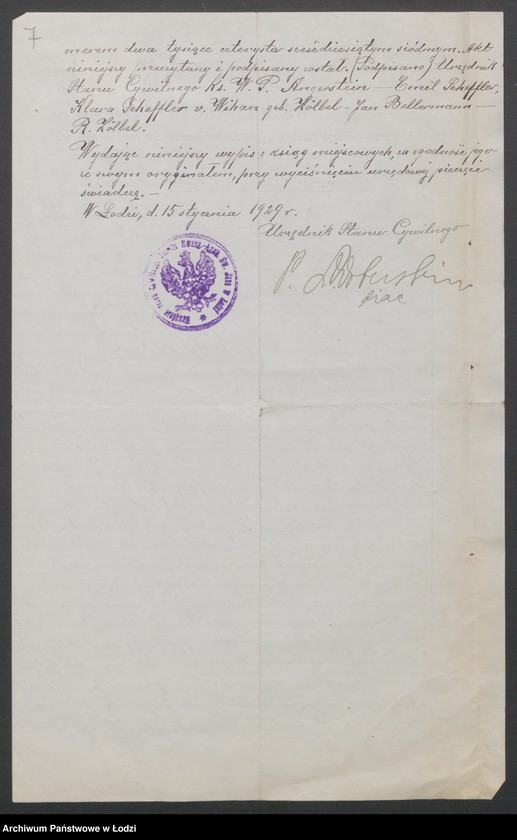 7
merem dwa tysiące czterysta sześćdziesiątym siódmym. Akt
niniejszy przeczytany i podpisany został. (Podpisano) Urzędnik
Stanu Cywilnego ks. W. P. Angerstein – Emil Scheffler,
Klara Scheffler v. Wihan geb. Kölbel – Jan Bellermann –
R. Kölbel.
Wydając niniejszy wypis z ksiąg miejscowych, za zgodność jego
ze swym oryginałem, przy wyciśnięciu urzędowej pieczęci
świadczę. –
W Łodzi, d. 15 stycznia 1929 r.
Urzędnik Stanu Cywilnego
P.
Ewang.-Augs. Św. Jana w Łodzi
Archiwum Państwowe w Łodzi